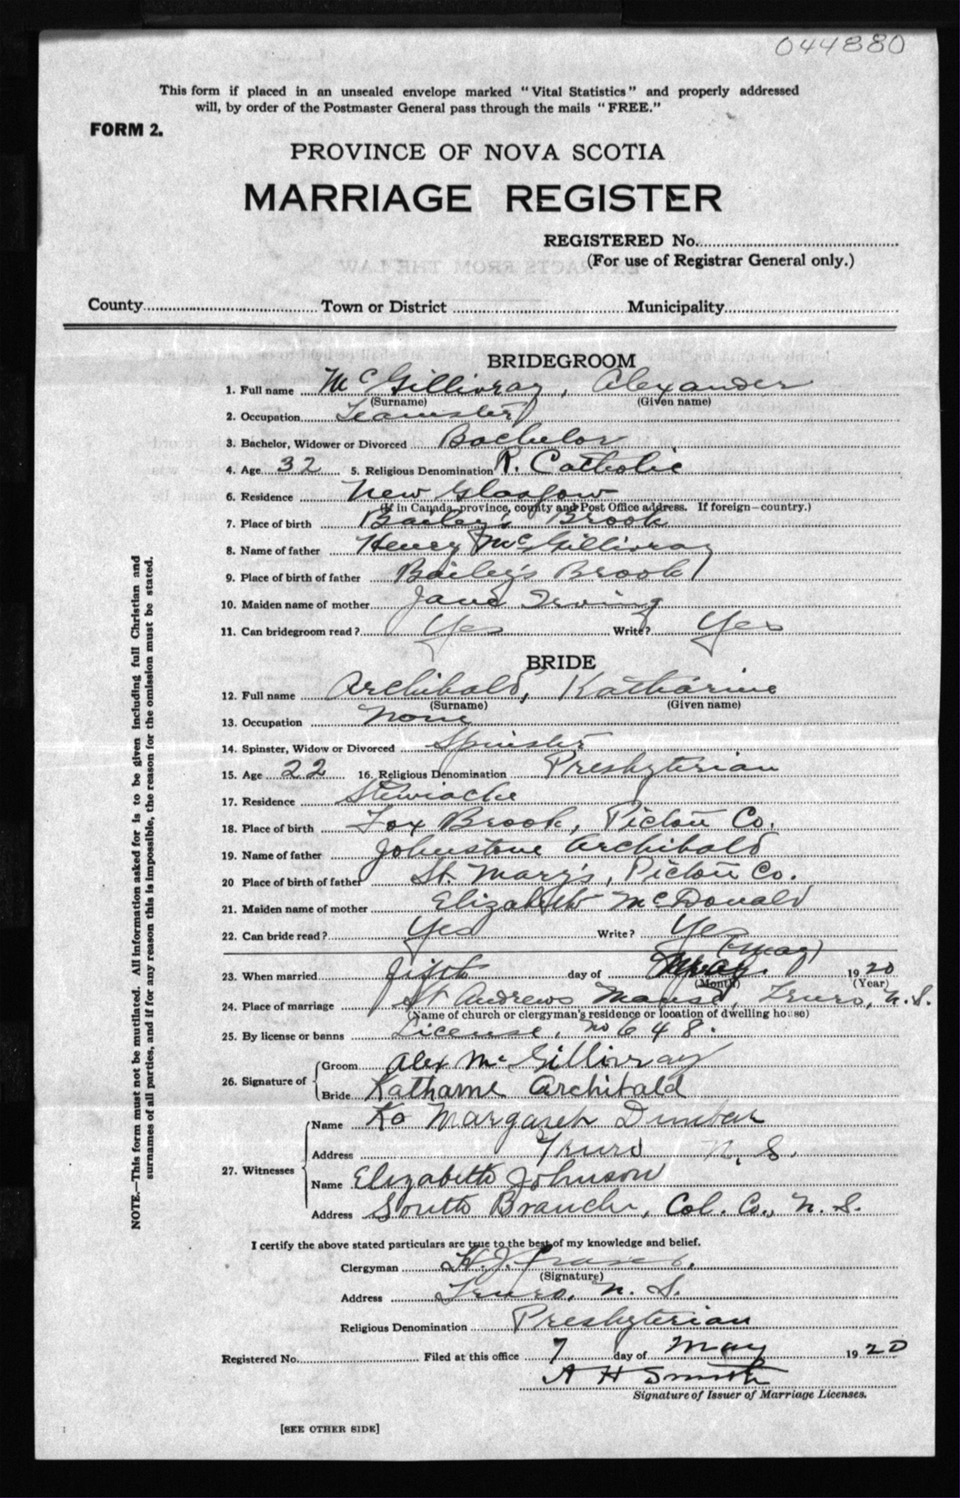 044880
This form if placed in an unsealed envelope marked "Vital Statistics" and properly addressed
will, by order of the Postmaster General pass through the mails "FREE."
FORM 2.
PROVINCE OF NOVA SCOTIA
MARRIAGE REGISTER
REGISTERED No.
(For use of Registrar General only.)
County Town or District Municipality
BRIDEGROOM
1. Full name McGillivray, Alexander
(Surname) (Given name)
2. Occupation Teamster
3. Bachelor, Widower or Divorced Bachelor
4. Age 32 5. Religious Denomination R. Catholic
6. Residence New Glasgow
(If in Canada, province, county and Post Office address. If foreign—country.)
7. Place of birth Bailey's Brook
8. Name of father Henry McGillivray
9. Place of birth of father Bailey's Brook
10. Maiden name of mother Jane Irving
11. Can bridegroom read? Yes Write? Yes
BRIDE
12. Full name Archibald, Katharine
(Surname) (Given name)
13. Occupation None
14. Spinster, Widow or Divorced Spinster
15. Age 22 16. Religious Denomination Presbyterian
17. Residence Stewiacke
18. Place of birth Fox Brook, Pictou Co.
19. Name of father Johnstone Archibald
20 Place of birth of father St. Mary's, Pictou Co.
21. Maiden name of mother Elizabeth McDonald
22. Can bride read? Yes Write? Yes
(May)
23. When married fifth day of May 1920
(Month) (Year)
24. Place of marriage St Andrews Manse, Truro, N.S.
(Name of church or clergyman's residence or location of dwelling house)
25. By license or banns License, no 648.
26. Signature of Groom Alex McGillivray
Bride Katharine Archibald
27. Witnesses Name Margaret Dunbar
Address Truro N. S.
Name Elizabeth Johnson
Address South Branch, Col. Co., N. S.
I certify the above stated particulars are true to the best of my knowledge and belief.
Clergyman H. J. Fraser.
(Signature)
Address Truro, N. S.
Religious Denomination Presbyterian
Registered No. Filed at this office 7 day of May 1920
A H Smith
Signature of Issuer of Marriage Licenses.
[SEE OTHER SIDE]
NOTE.—This form must not be mutilated. All information asked for is to be given including full Christian and
surnames of all parties, and if for any reason this is impossible, the reason for the omission must be stated.